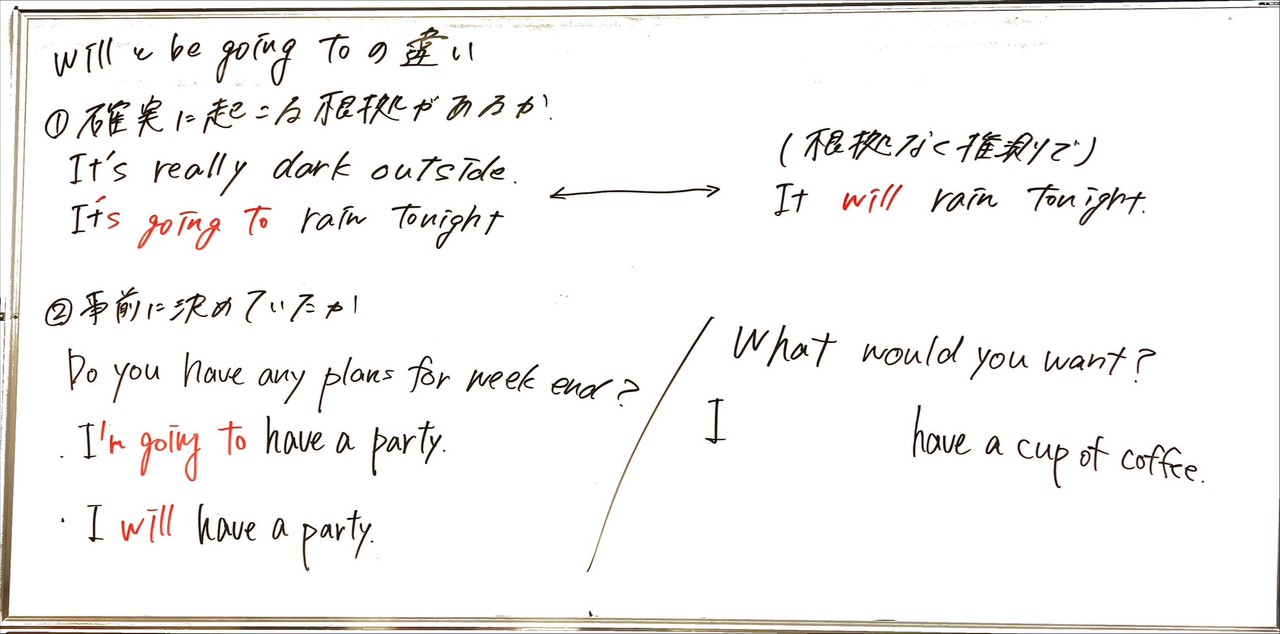 will と be going to の違い
①確実に起こる根拠があるか.
It's really dark outside.
It's going to rain tonight
(根拠なく推測で)
It will rain tonight.
②事前に決めていたか
Do you have any plans for week end?
・I'm going to have a party.
・I will have a party.
What would you want?
I have a cup of coffee.